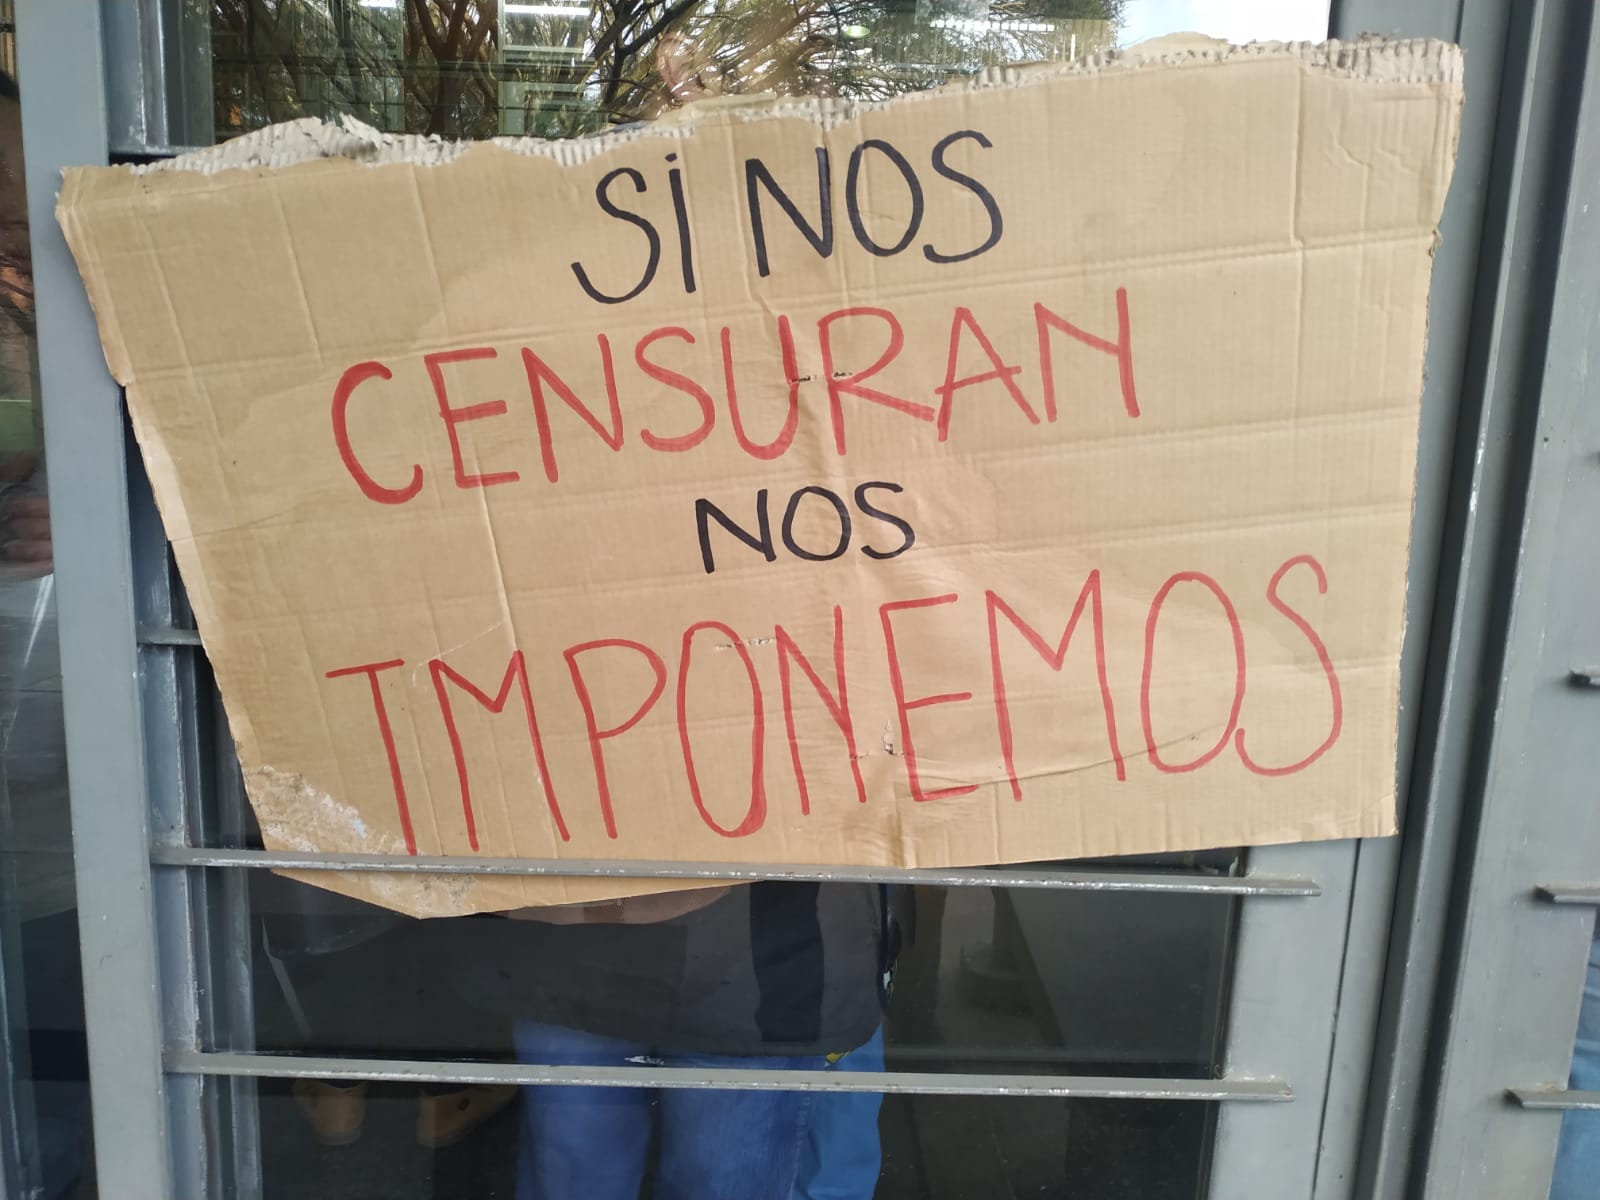 Si NOS
CENSURAN
NOS
IMPONEMOS